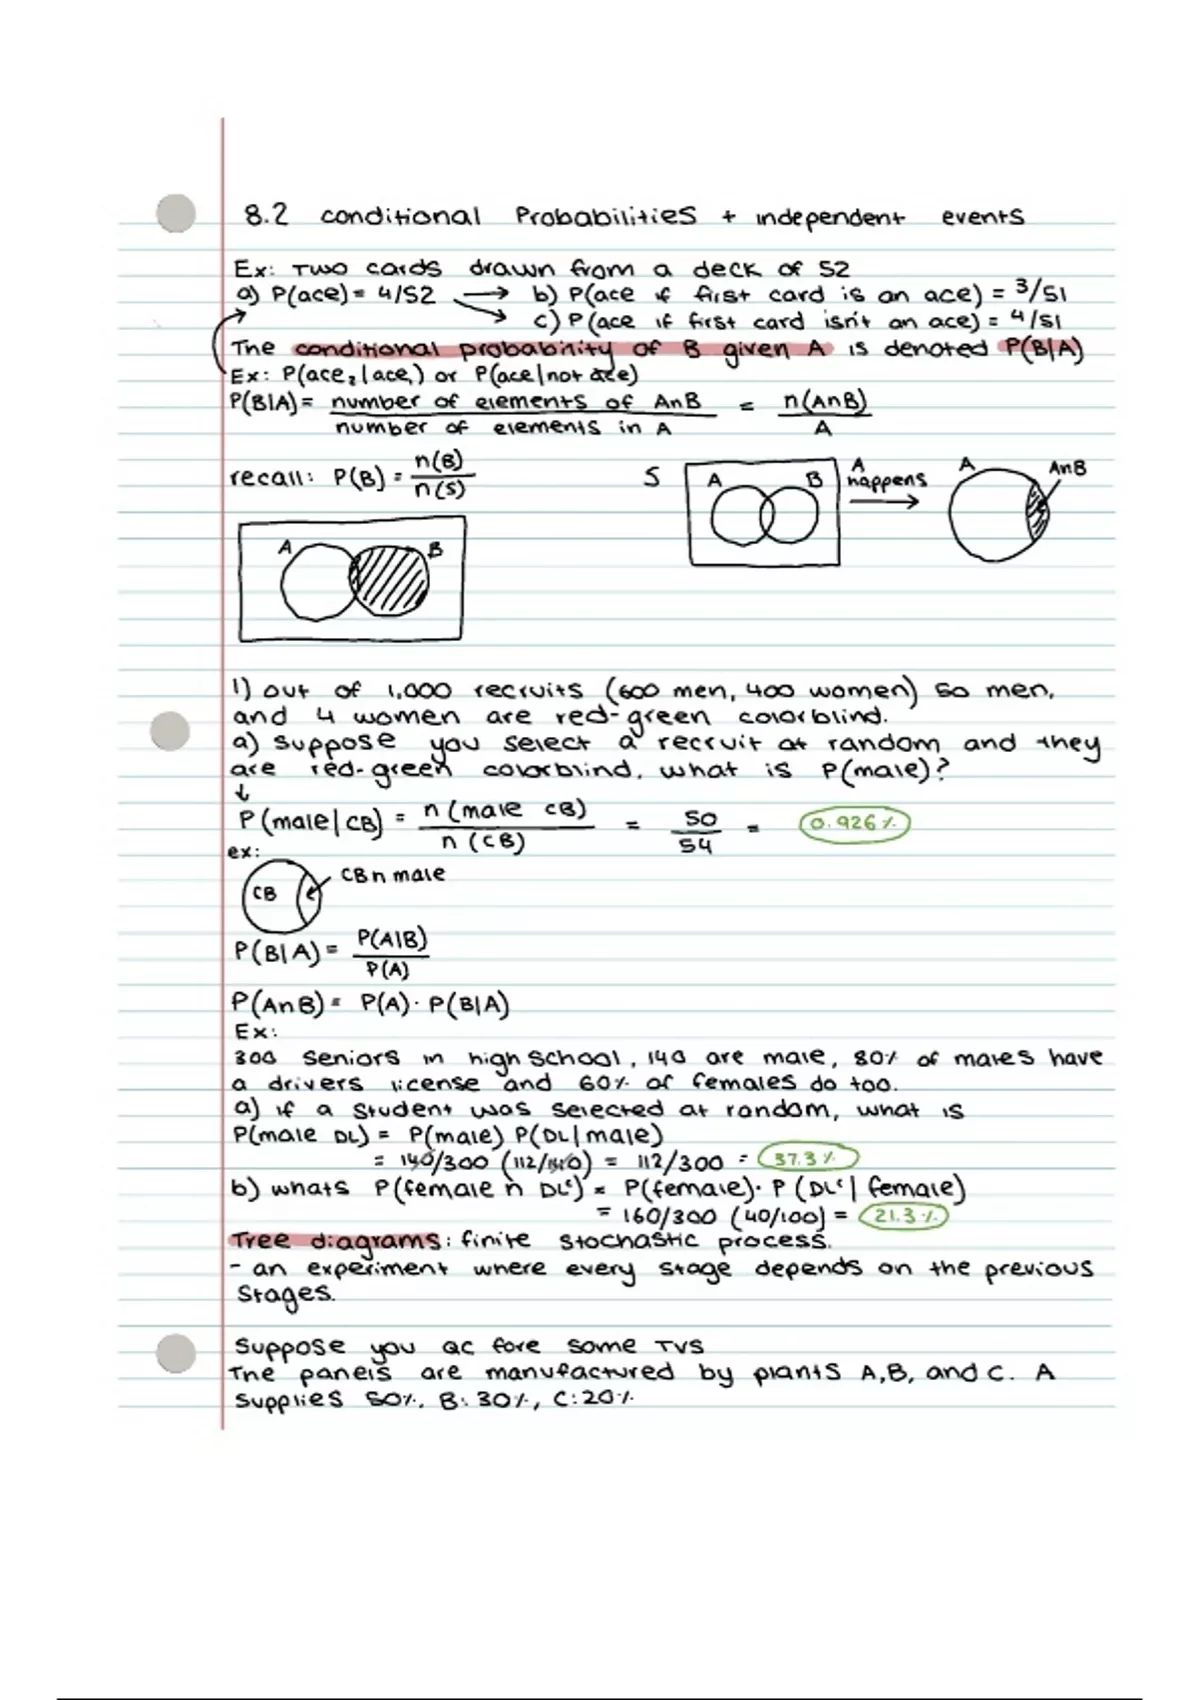 8.2 conditional Probabilities + independent events
Ex: Two cards drawn from a deck of 52
a) P(ace) = 4/52 → b) P(ace if first card is an ace) = 3/51
c) P(ace if first card isn't an ace) = 4/51
The conditional probability of B given A is denoted P(B|A)
Ex: P(ace₂|ace₁) or P(ace|not ace)
P(B|A) = number of elements of A∩B / number of elements in A = n(A∩B) / A
recall: P(B) = n(B) / n(S)
S A B A happens → A A∩B
A B
1) out of 1,000 recruits (600 men, 400 women) 50 men,
and 4 women are red-green colorblind.
a) suppose you select a recruit at random and they
are red-green colorblind, what is P(male)?
↓
P(male|CB) = n(male CB) / n(CB) = 50/54 = 0.926%
ex:
CB CB∩male
P(B|A) = P(A|B) / P(A)
P(A∩B) = P(A) · P(B|A)
Ex:
300 seniors in high school, 140 are male, 80% of males have
a drivers license and 60% of females do too.
a) if a student was selected at random, what is
P(male DL) = P(male) P(DL|male)
= 140/300 (112/140) = 112/300 = 37.3%
b) whats P(female ∩ DLᶜ) = P(female) · P(DLᶜ|female)
= 160/300 (40/100) = 21.3%
Tree diagrams: finite stochastic process.
- an experiment where every stage depends on the previous
stages.
Suppose you QC fore some TVs
The panels are manufactured by plants A,B, and C. A
supplies 50%, B: 30%, C: 20%